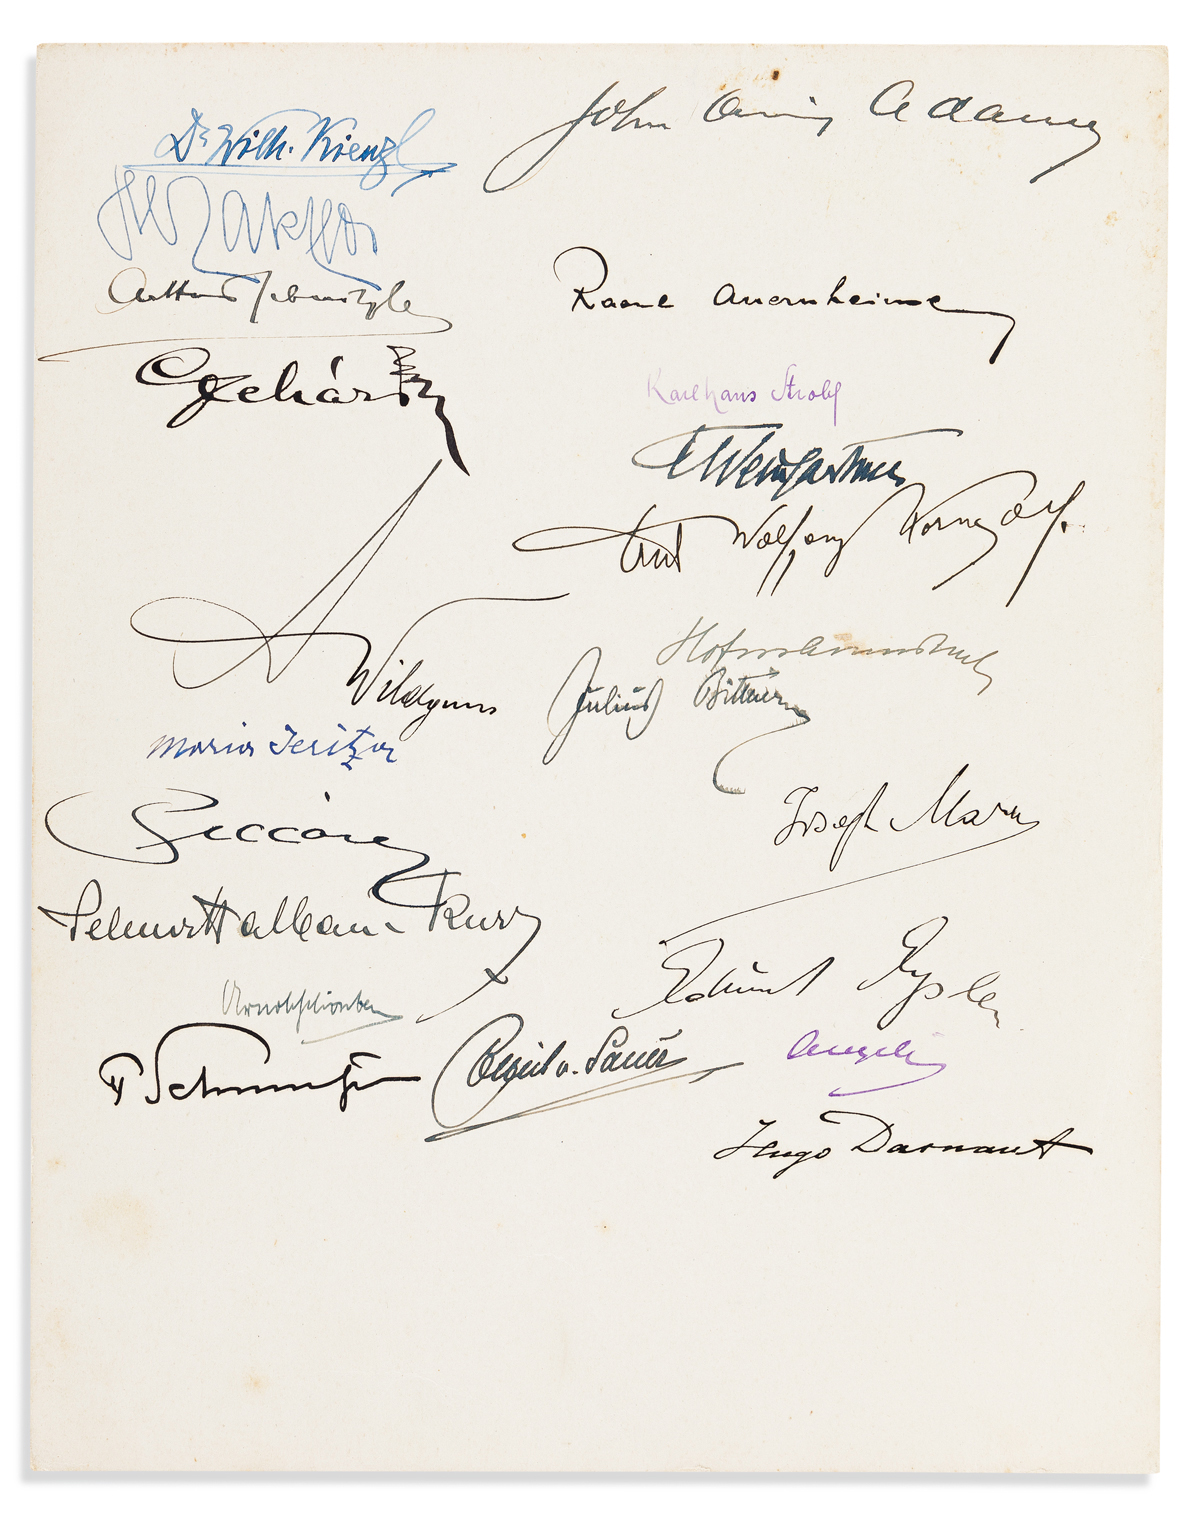 Dr Wilh. Kienzl
John Quincy Adams
Arthur Schnitzler
Raoul Auernheimer
Lehár
Karlhans Strobl
F Weingartner
Erich Wolfgang Korngold.
A Wildgans
Hofmannsthal
Julius Bittner
Maria Jeritza
Joseph Marx
Piccaver
Selma Halban-Kurz
Edmund Eysler
Arnold Schönberg
F Schmutzer
Emil v. Sauer
Angeli
Hugo Darnaut